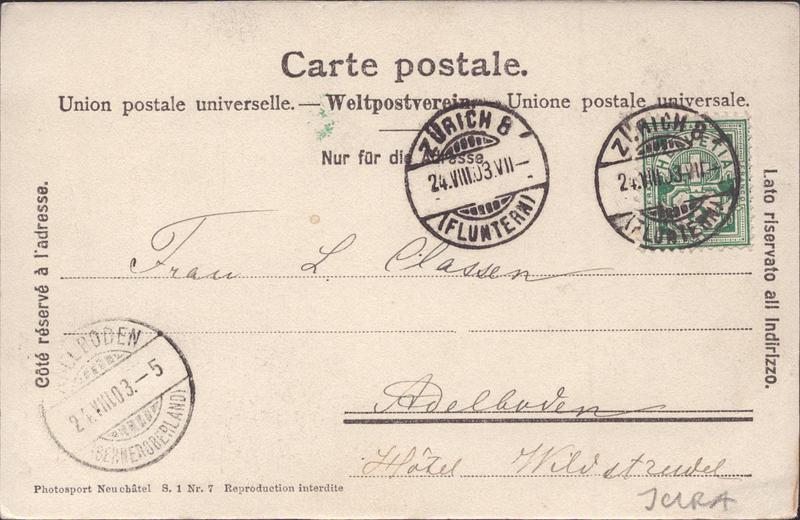 Carte postale.
Union postale universelle. — Weltpostverein. Unione postale universale.
Nur für die Adresse
ZÜRICH 8
24.VIII.03.VII—
(FLUNTERN)
ZÜRICH 8
24.VIII.03.VII—
(FLUNTERN)
Côté réservé à l'adresse.
Lato riservato all Indirizzo.
Frau L. Classen
24.VIII.03.—5
(BERNEROBERLAND)
Adelboden
Hôtel Wildstrudel
Photosport Neuchâtel S. 1 Nr. 7 Reproduction interdite
JURA